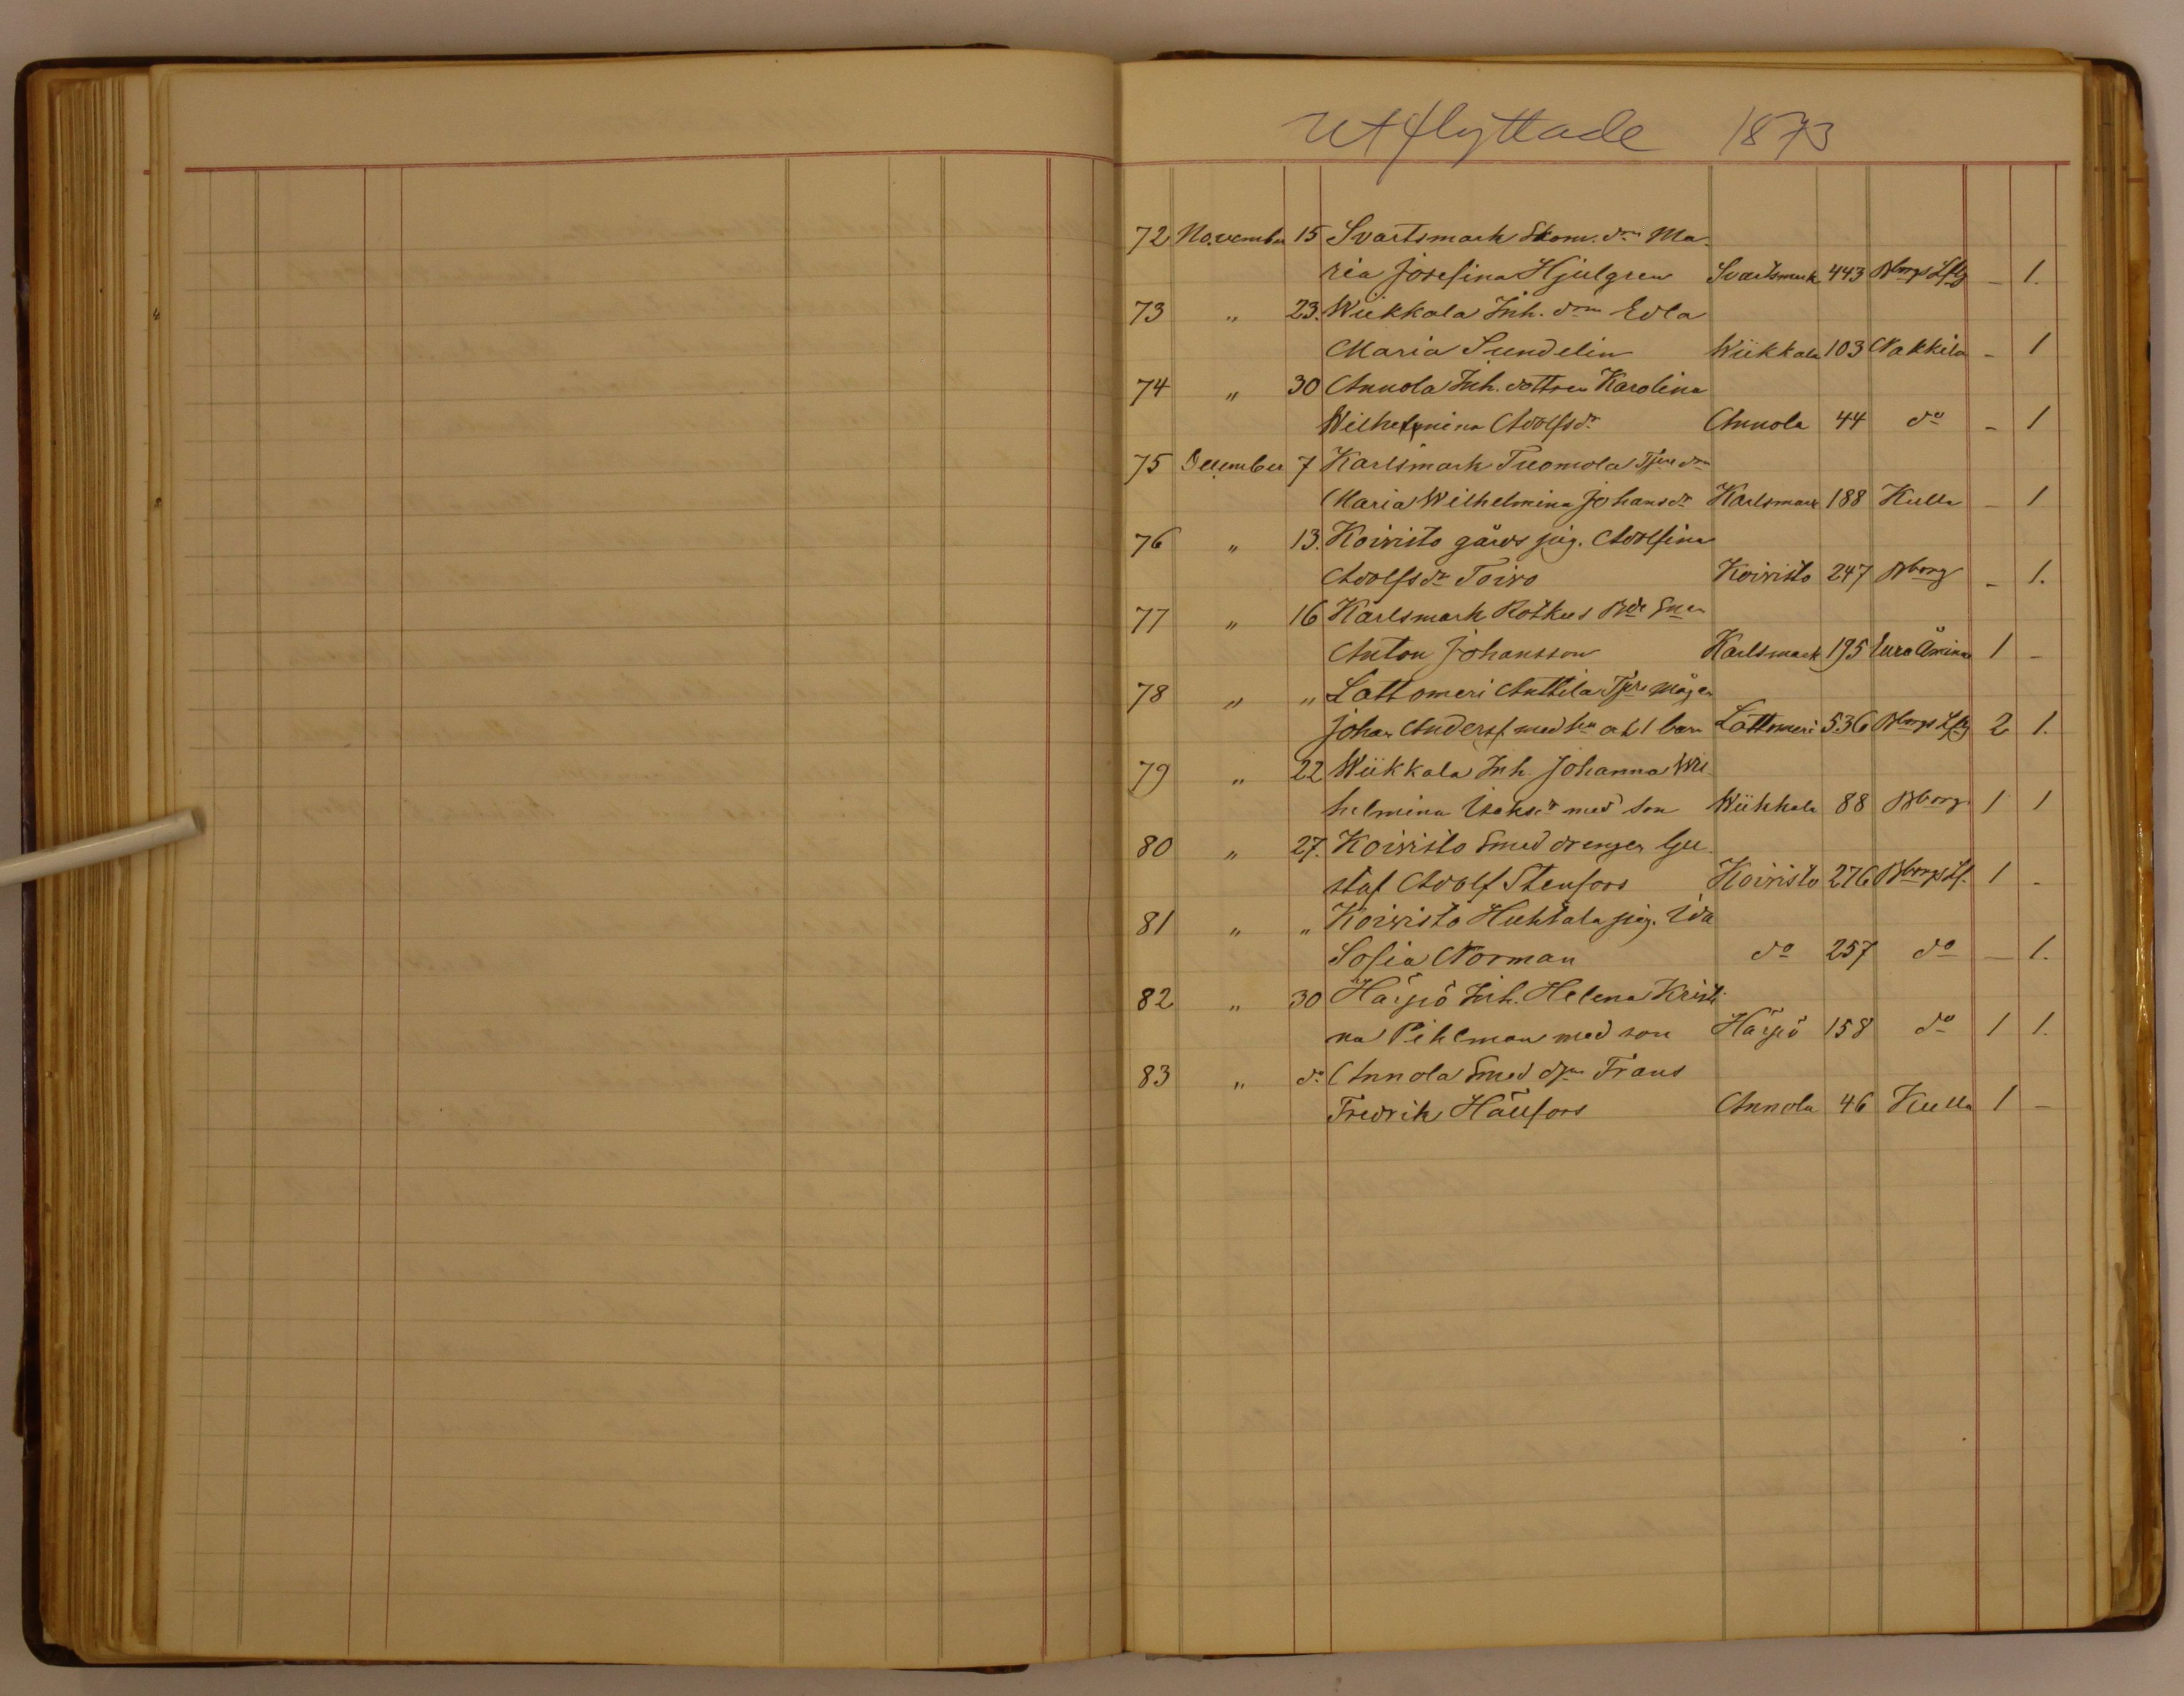 Utflyttade 1873
72 November 15 Svartsmark Skom. drn Ma-
ria Josefina Hjulgren Svartsmark 443 Bborgs Lfg - 1.
73 " 23. Wiikkala Inh. drn Edla
Maria Sundelin Wiikkala 103 Nakkila - 1
74 " 30 Annola Inh. dottren Karolina
Wilhelmina Adolfsdr Annola 44 do - 1
75 December 7 Karlsmark Tuomola Tjre drn
Maria Wilhelmina Johansdr Karlsmark 188 Kulla - 1
76 " 13. Koivisto gårds pig. Adolfina
Adolfsdr Toivo Koivisto 247 Bborg - 1.
77 " 16 Karlsmark Rotkus Bde Snn
Anton Johansson Karlsmark 195 Eura Åminne 1 -
78 " " Lattomeri Anttila Tjre mågen
Johan Anderss. med hu o 1 barn Lattomeri 536 Bborgs Lfg 2 1.
79 " 22 Wiikkala Inh. Johanna Wil-
helmina Isaksdr med son Wiikkala 88 Bborg 1 1
80 " 27. Koivisto Smed drengen Gu-
staf Adolf Stenfors Koivisto 276 Bborgs Lf. 1 -
81 " " Koivisto Huhtala pig. Ida
Sofia Norman do 257 do - 1.
82 " 30 Härpö Inh. Helena Kristi-
na Pihlman med son Härpö 158 do 1 1.
83 " do Annola Smed djn Frans
Fredrik Häufors Annola 46 Kulla 1 -